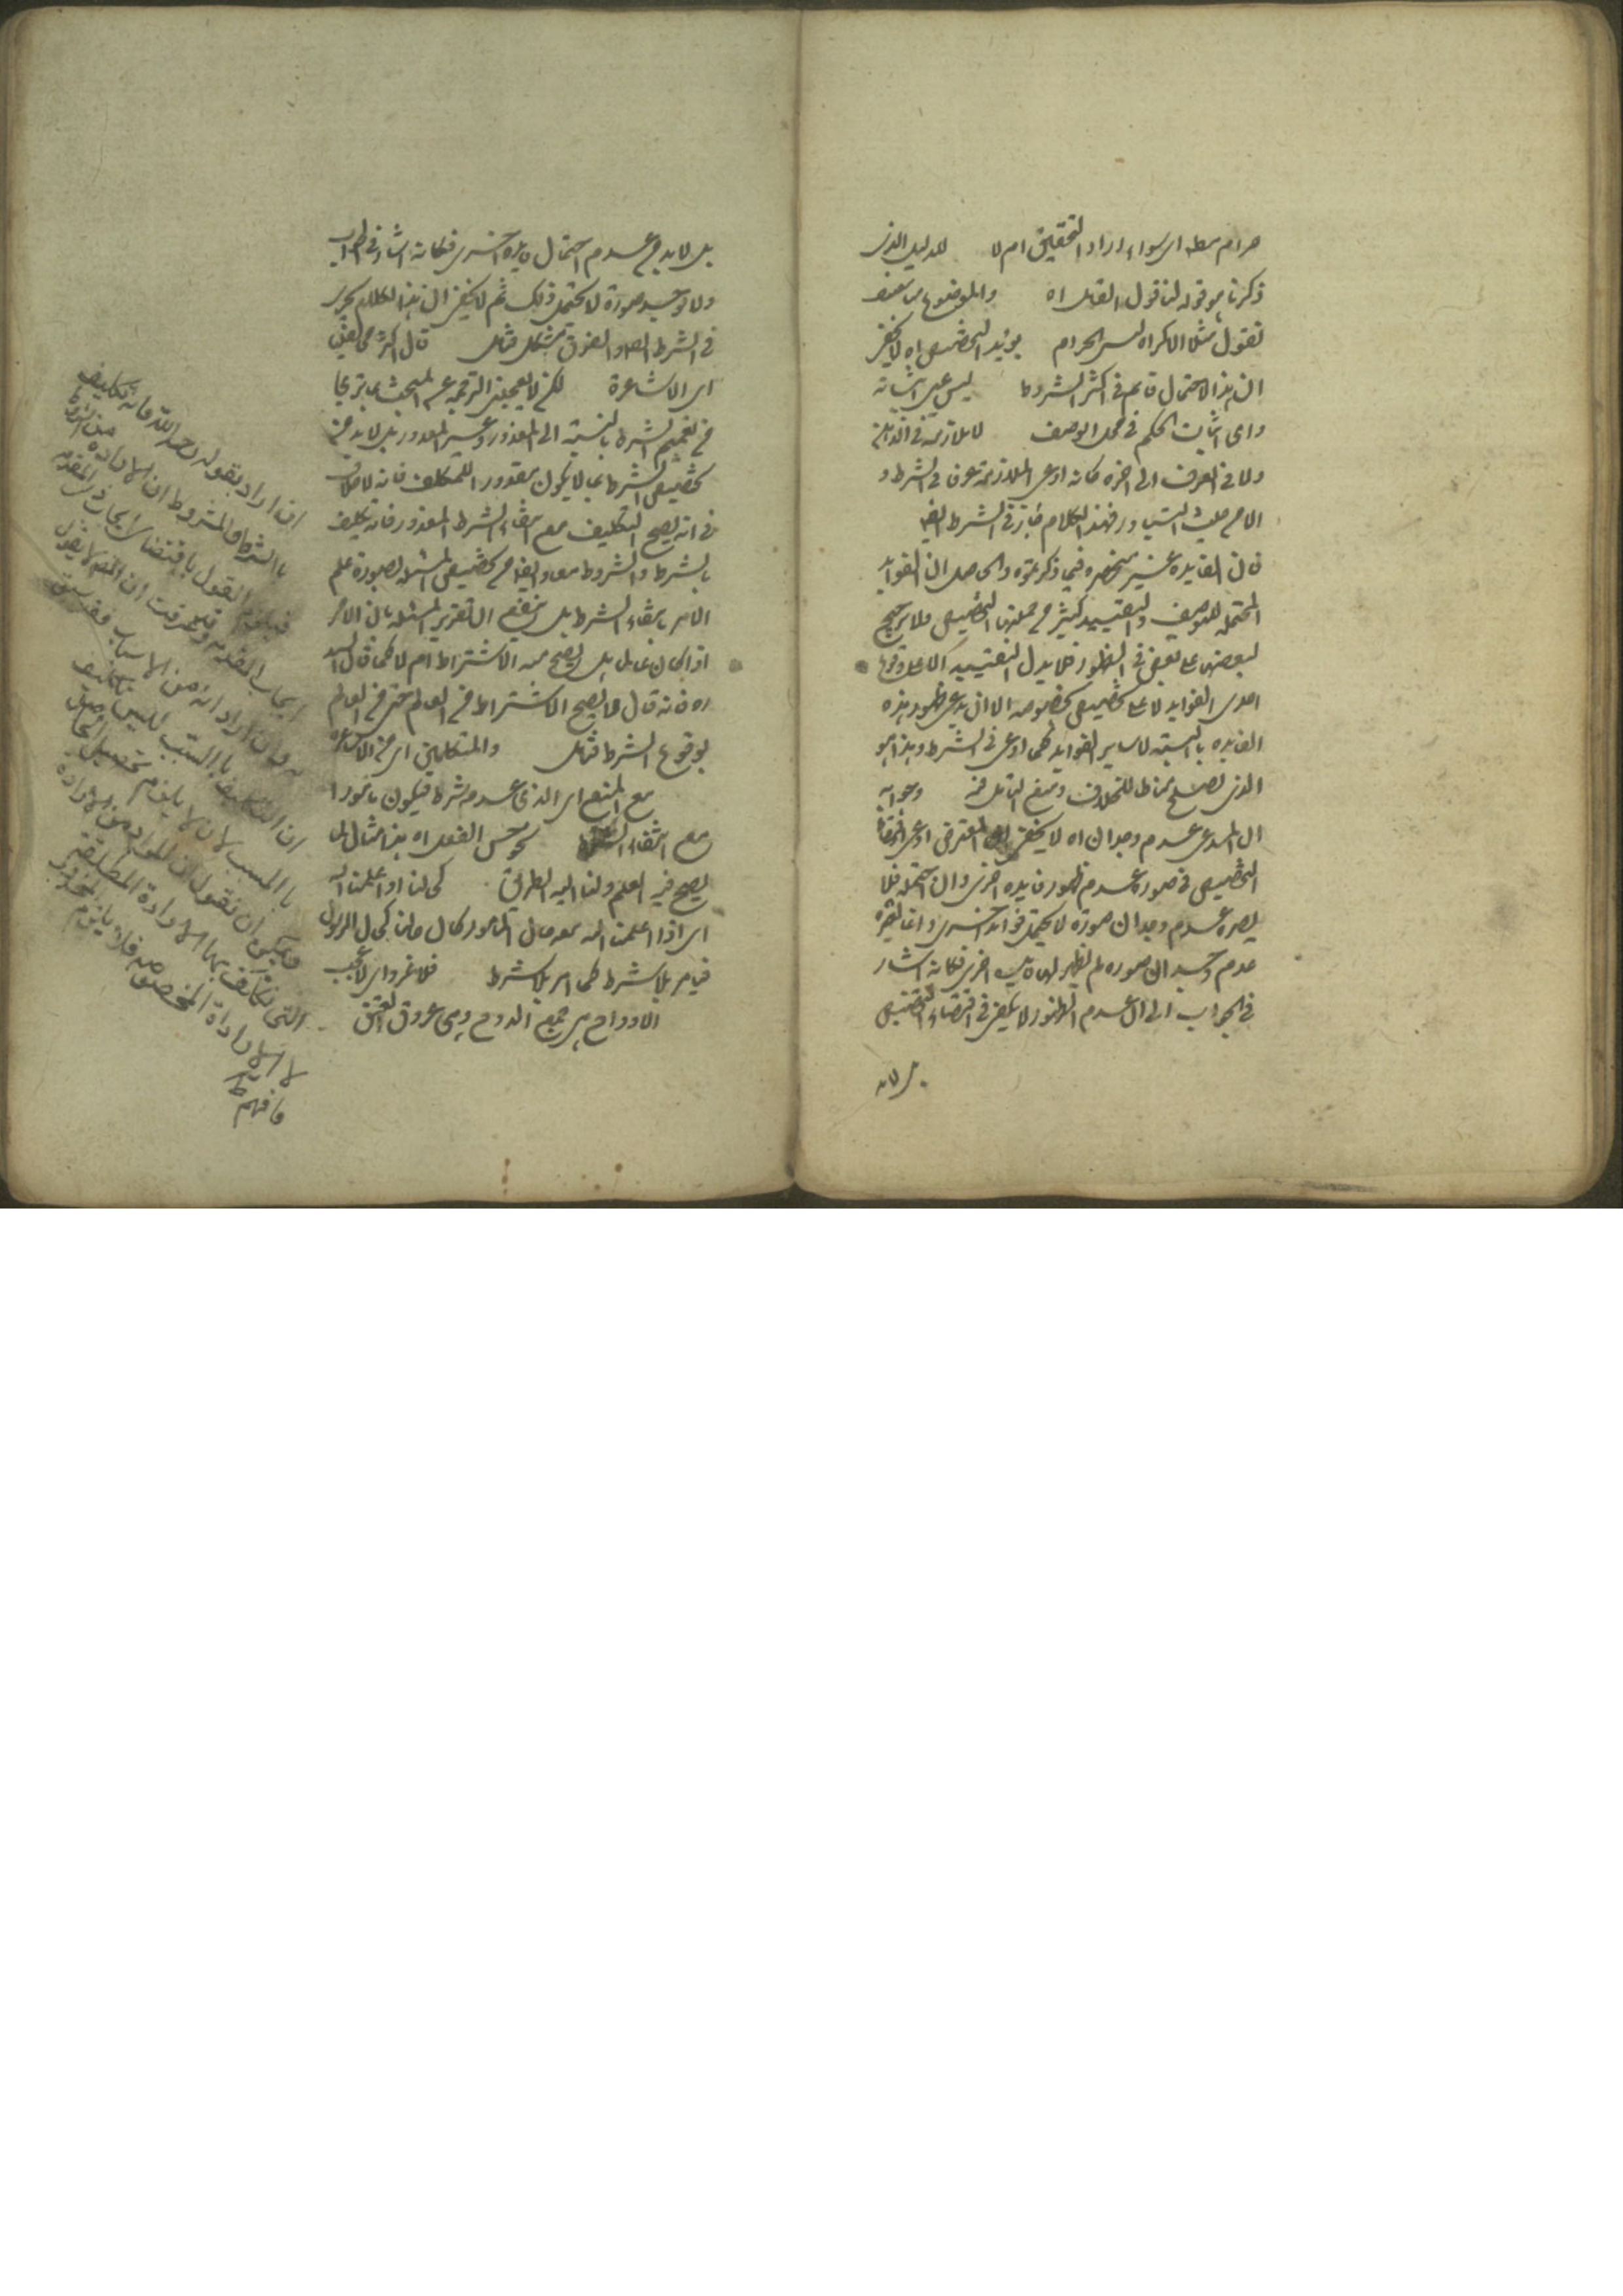 حرام مطلقا سواء اراد التحقيق ام لا للدليل الذى
ذكرنا هو قوله لنا قول القائل اه والموضوع
نقول مثلا الاكراه ليس الحرام يؤيد التخصيص اه لا يخفى
ان هذا الاحتمال قايم فى اكثر الشروط ليس عين اثباته
واى اثبات الحكم فى محل الوصف لا ملازمة فى الذهن
ولا فى العرف الى اخره كانه ادعى الملازمة عرفا فى الشرط و
الا من حيث التبادر فهذا الكلام جار فى الشرط ايضا
فان الفايدة غير منحصرة فيما ذكرتموه والحاصل ان الفوايد
المحتملة للتوصيف والتقييد كثير من جملتها التخصيص فلا ترجيح
لبعضها على بعض فى الظهور فلا يدل التقييد الا على وقوع
احدى الفوايد لا على التخصيص بخصوصه الا ان يدعى ظهور هذه
الفايدة بالنسبة لساير الفوايد كما ادعى فى الشرط وهذا هو
الذى يصلح مناطا للخلاف وينبغى التأمل فيه وجوابه
ان المدعى عدم وجدان اه لا يخفى ان المعترض ادعى
التخصيص فى صورة عدم ظهور فايدة اخرى وان احتمله فلا
يضره عدم وجدان صورة لا يحتمل فوايد اخرى وانما يضره
عدم وجدان صورة لم يظهر لها فايدة اخرى فكانه اشار
فى الجواب الى ان عدم الظهور لا يكفى فى اقتضاء التخصيص
بل لا بد من عدم احتمال فايدة اخرى فكانه اشار فى الجواب
ولا توجد صورة لا تحتمل ذلك ثم لا يخفى ان هذا الكلام يجرى
فى الشرط ايضا والفرق مشكل فتأمل قال اكثر مخالفينا
اى الاشاعرة لكن لا يعجبنى الترجمة عن المبحث بما ترى
من تعميم الشرط بالنسبة الى المقدور وغير المقدور بل لا بد من
تخصيص الشرط بما لا يكون مقدورا للمكلف فانه لا خلاف
فى انه يصح التكليف مع انتفاء الشرط المقدور فانه تكليف
بالشرط والمشروط معا وايضا من تخصيص المسئلة بصورة علم
الامر بانتفاء الشرط بل ينبغى ان تقرير المسئلة بان الامر
اذا كان عالما هل يصح منه الاشتراط ام لا كما قال السيد
ره فانه قال ولا يصح الاشتراط فى العالم حتى فى العالم
بوقوع الشرط فتأمل والمتكلمين اى من الاشاعرة
مع المنع اى الذى عدم شرط فيكون مأمورا
مع انتفاء نحو حسن الفعل اه هذا مثال لما
يصح فيه العلم ولنا اليه الطريق كما لنا او اعلمنا الله
اى اذا اعلمنا الله معه حال المأمور كان حالنا كحال الرسول
فيأمر بلا شرط كما امر بلا شرط فلا غرو اى لا عجب
الاوداج هى جمع الودج وهى عروق العنق
ان اراد بقوله رحمه الله فانه تكليف
بالشرط والمشروط ان الارادة من الشرط
فيلزم القول باقتضاء ايجاب ذى المقدمة
ايجاب المقدمة وقد عرفت ان المصـ لا يقول
به وان اراد انه من الاسباب فقد سبق
ان التكليف بالسبب ليس تكليف
بالمسبب لان لا يلزم تحصيل الحاصل
ويمكن ان نقول ان المراد من الارادة
التى نكلف بها الارادة المطلقة
لا الارادة المخصوصة فلا يلزم المحذور
فافهم